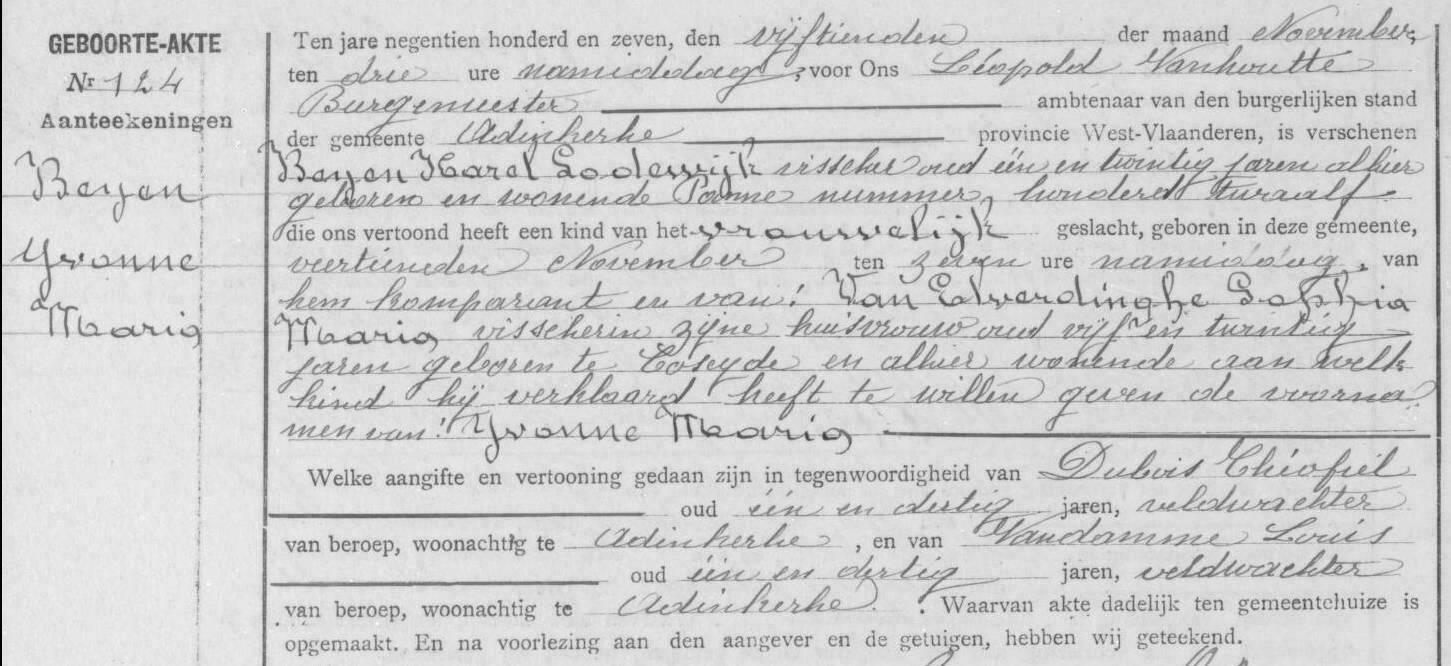 GEBOORTE-AKTE
Nr 124
Aanteekeningen
Beyen
Yvonne
Maria
Ten jare negentien honderd en zeven, den vijftienden der maand November,
ten drie ure namiddag, voor Ons Léopold Vanhoutte
Burgemeester ambtenaar van den burgerlijken stand
der gemeente Adinkerke provincie West-Vlaanderen, is verschenen
Beyen Karel Lodewijk visscher oud één en twintig jaren alhier
geboren en wonende Panne nummer, honderd twaalf
die ons vertoond heeft een kind van het vrouwelijk geslacht, geboren in deze gemeente,
veertienden November ten zeven ure namiddag, van
hem komparant en van: Van Elverdinghe Sophia
Maria visscherin zijne huisvrouw oud vijf en twintig
jaren geboren te Coxyde en alhier wonende aan welk
kind hij verklaard heeft te willen geven de voorna
men van: Yvonne Maria
Welke aangifte en vertooning gedaan zijn in tegenwoordigheid van Dubois Théofiel
oud één en dertig jaren, veldwachter
van beroep, woonachtig te Adinkerke, en van Vandamme Louis
oud één en dertig jaren, veldwachter
van beroep, woonachtig te Adinkerke. Waarvan akte dadelijk ten gemeentehuize is
opgemaakt. En na voorlezing aan den aangever en de getuigen, hebben wij geteekend.